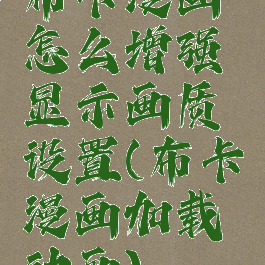 布卡漫画
怎么增强
显示画质
设置(布卡
漫画加载
动画)